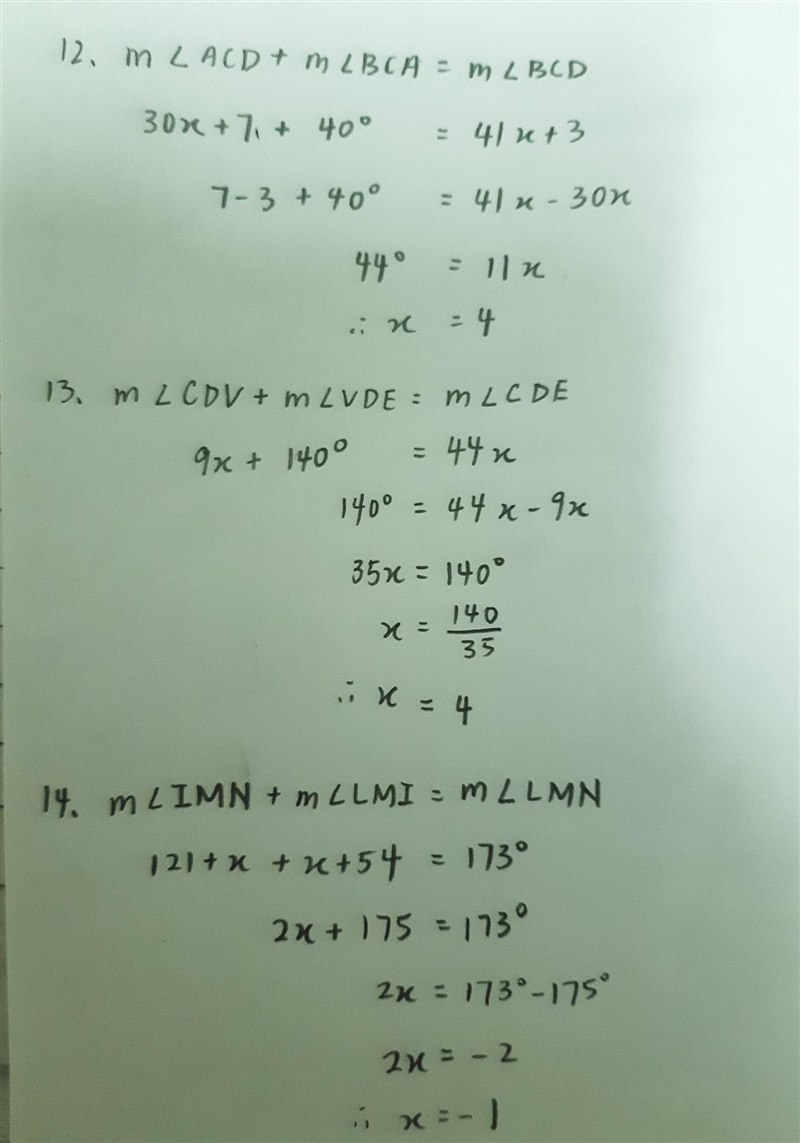 12. m∠ACD + m∠BCA = m∠BCD
30x + 7 + 40° = 41x + 3
7 - 3 + 40° = 41x - 30x
44° = 11x
∴ x = 4
13. m∠CDV + m∠VDE = m∠CDE
9x + 140° = 44x
140° = 44x - 9x
35x = 140°
x = 140/35
∴ x = 4
14. m∠IMN + m∠LMI = m∠LMN
121 + x + x + 54 = 173°
2x + 175 = 173°
2x = 173° - 175°
2x = -2
∴ x = -1